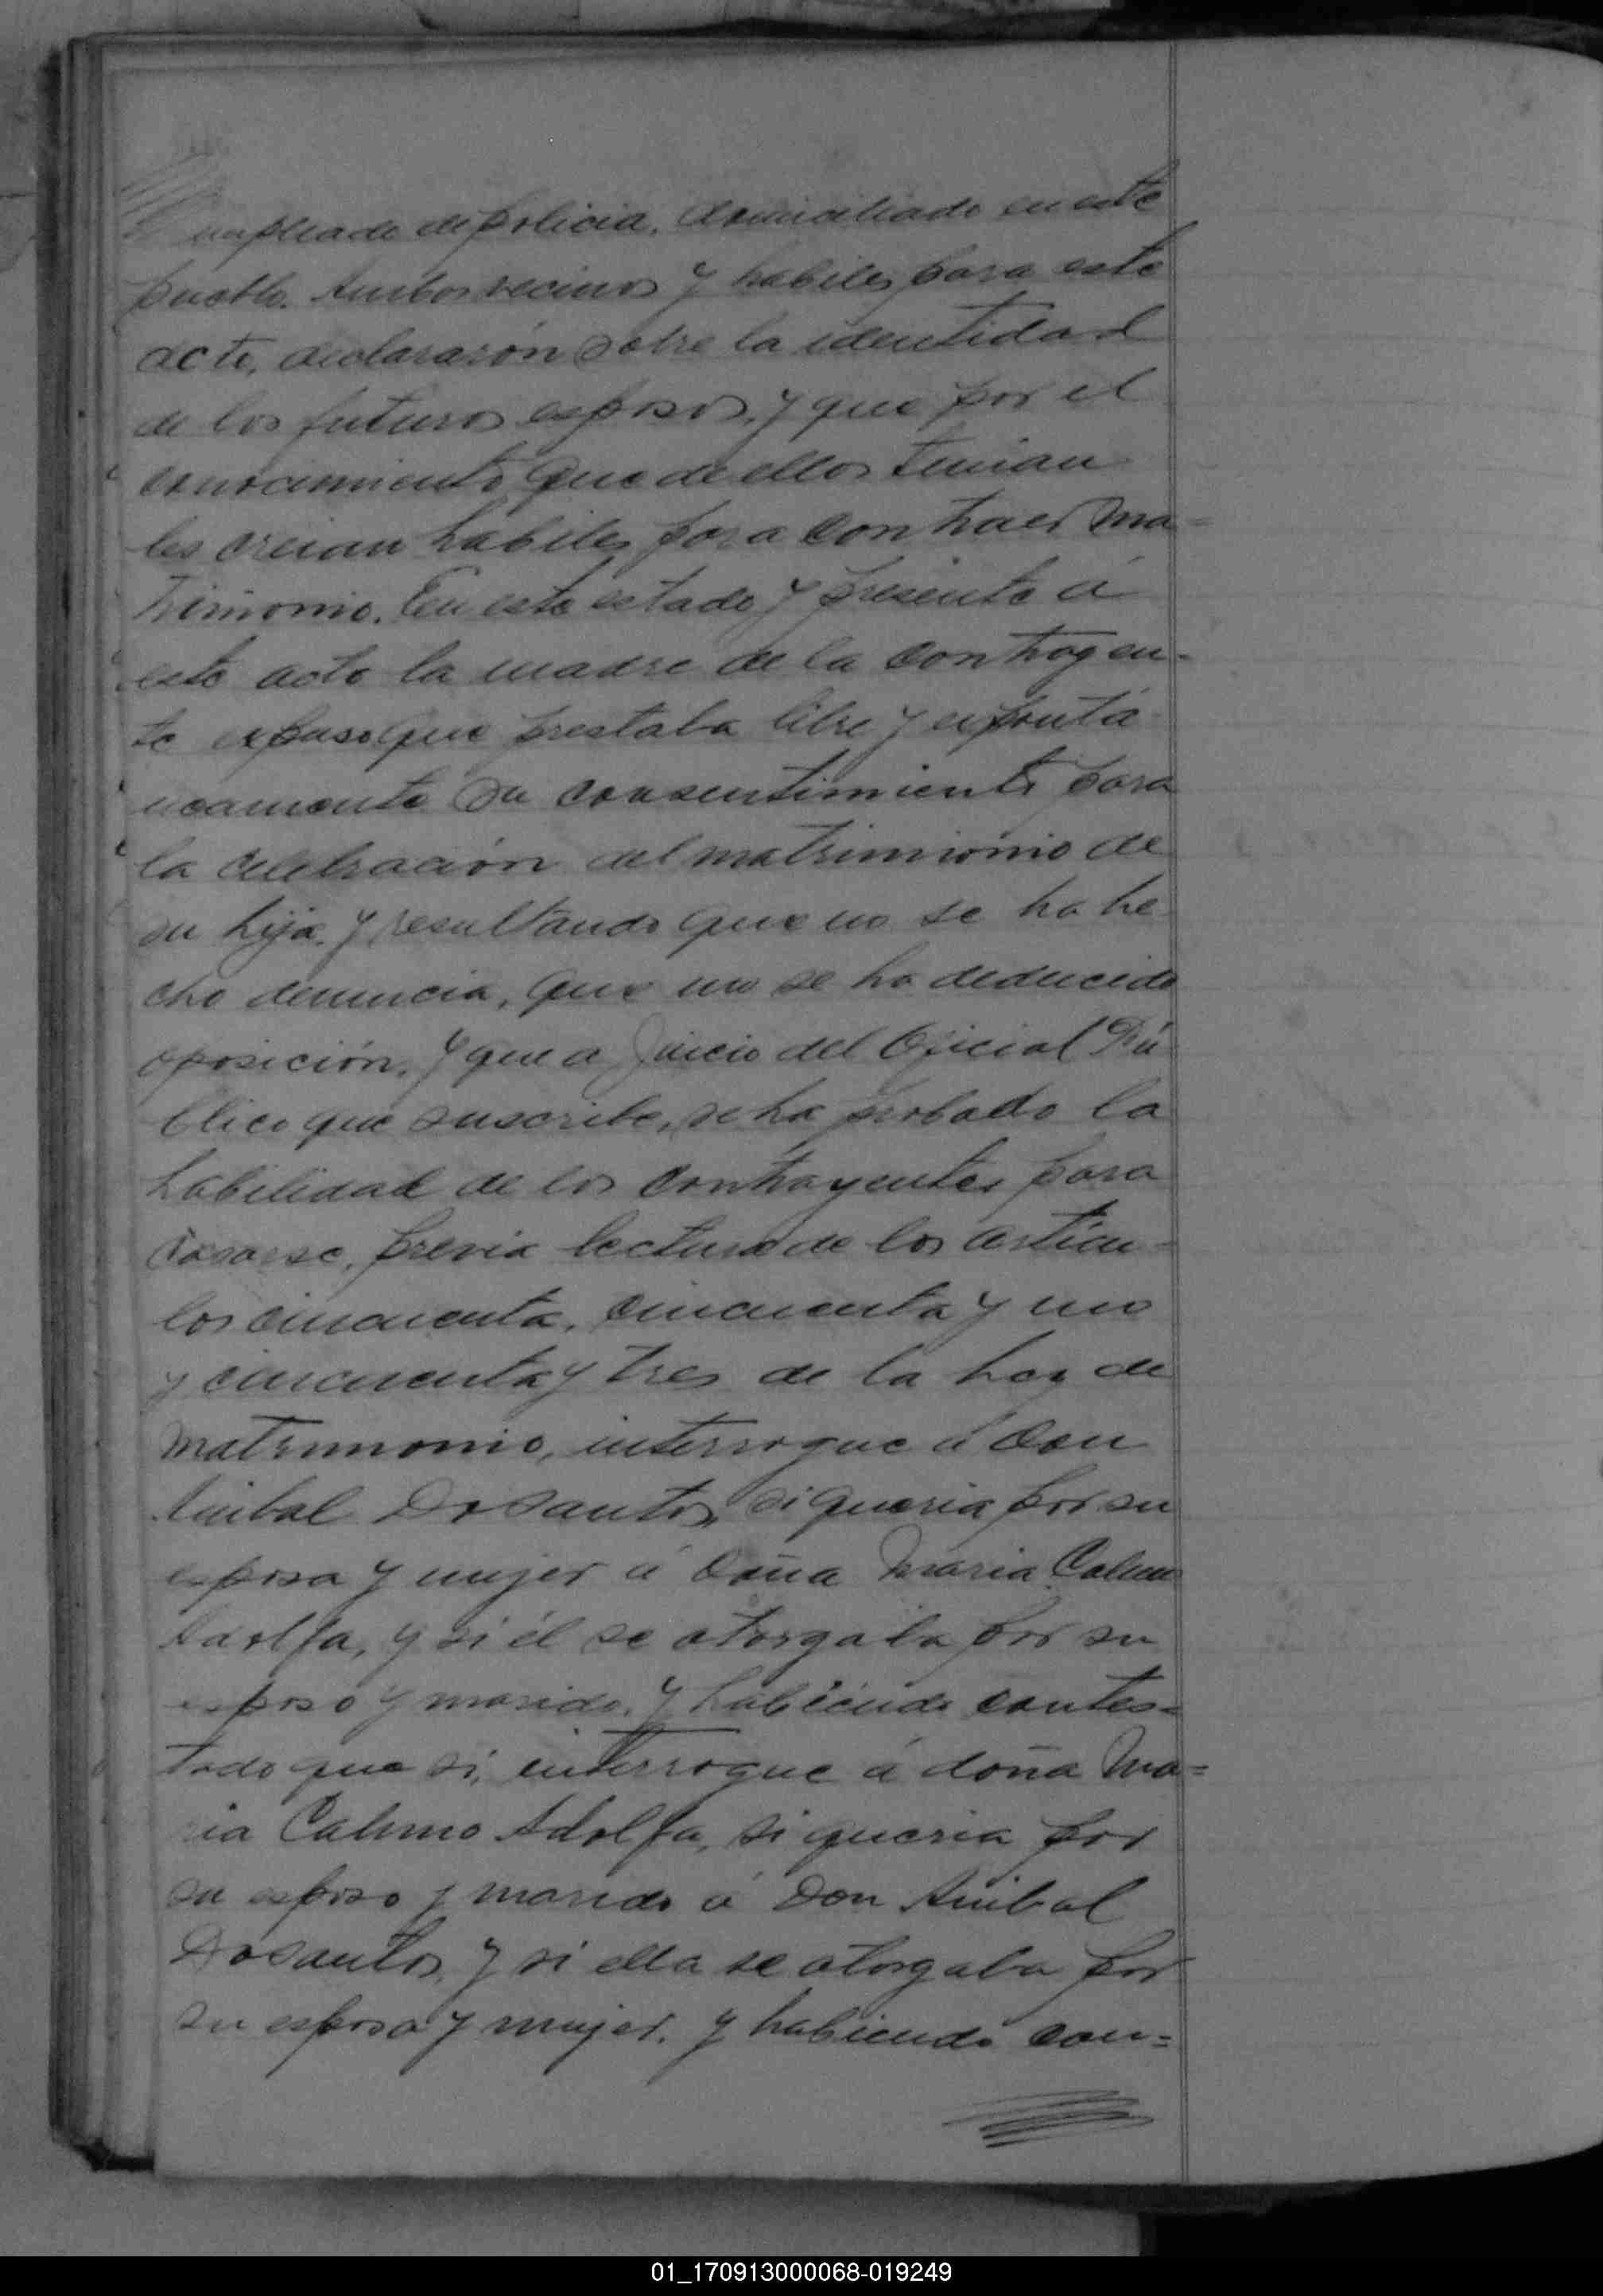 Empleado de policia, domiciliado en este
pueblo. Ambos vecinos y habiles para este
acto, declararón sobre la identidad
de los futuros esposos, y que por el
conocimiento que de ellos tenian
les creian habiles para contraer ma=
trimonio. En este estado y presente á
este acto la madre de la contrayen-
te expuso que prestaba libre y espontá
neamente su consentimiento para
la celebración del matrimonio de
su hija, y resultando que no se ha he
cho denuncia, que no se ha deducido
oposición, y que a juicio del Oficial Pú
blico que suscribe, se ha probado la
habilidad de los contrayentes para
casarse, previa lectura de los artícu=
los cincuenta, cincuenta y uno
y cincuenta y tres de la ley de
matrimonio, interrogue á Don
Anibal Dosantos, si queria por su
esposa y mujer á Doña Maria Calumo
Adolfa, y si él se otorgaba por su
esposo y marido, y habiendo contes=
tado que si, interrogue á doña Ma=
ria Calumo Adolfa, si queria por
su esposo y marido á Don Anibal
Dosantos, y si ella se otorgaba por
su esposa y mujer, y habiendo con=
01_170913000068-019249